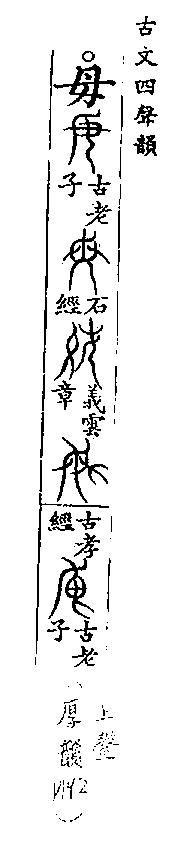 古文四聲韻
母
古老子
石經
義雲章
古孝經
古老子
上聲
厚韻